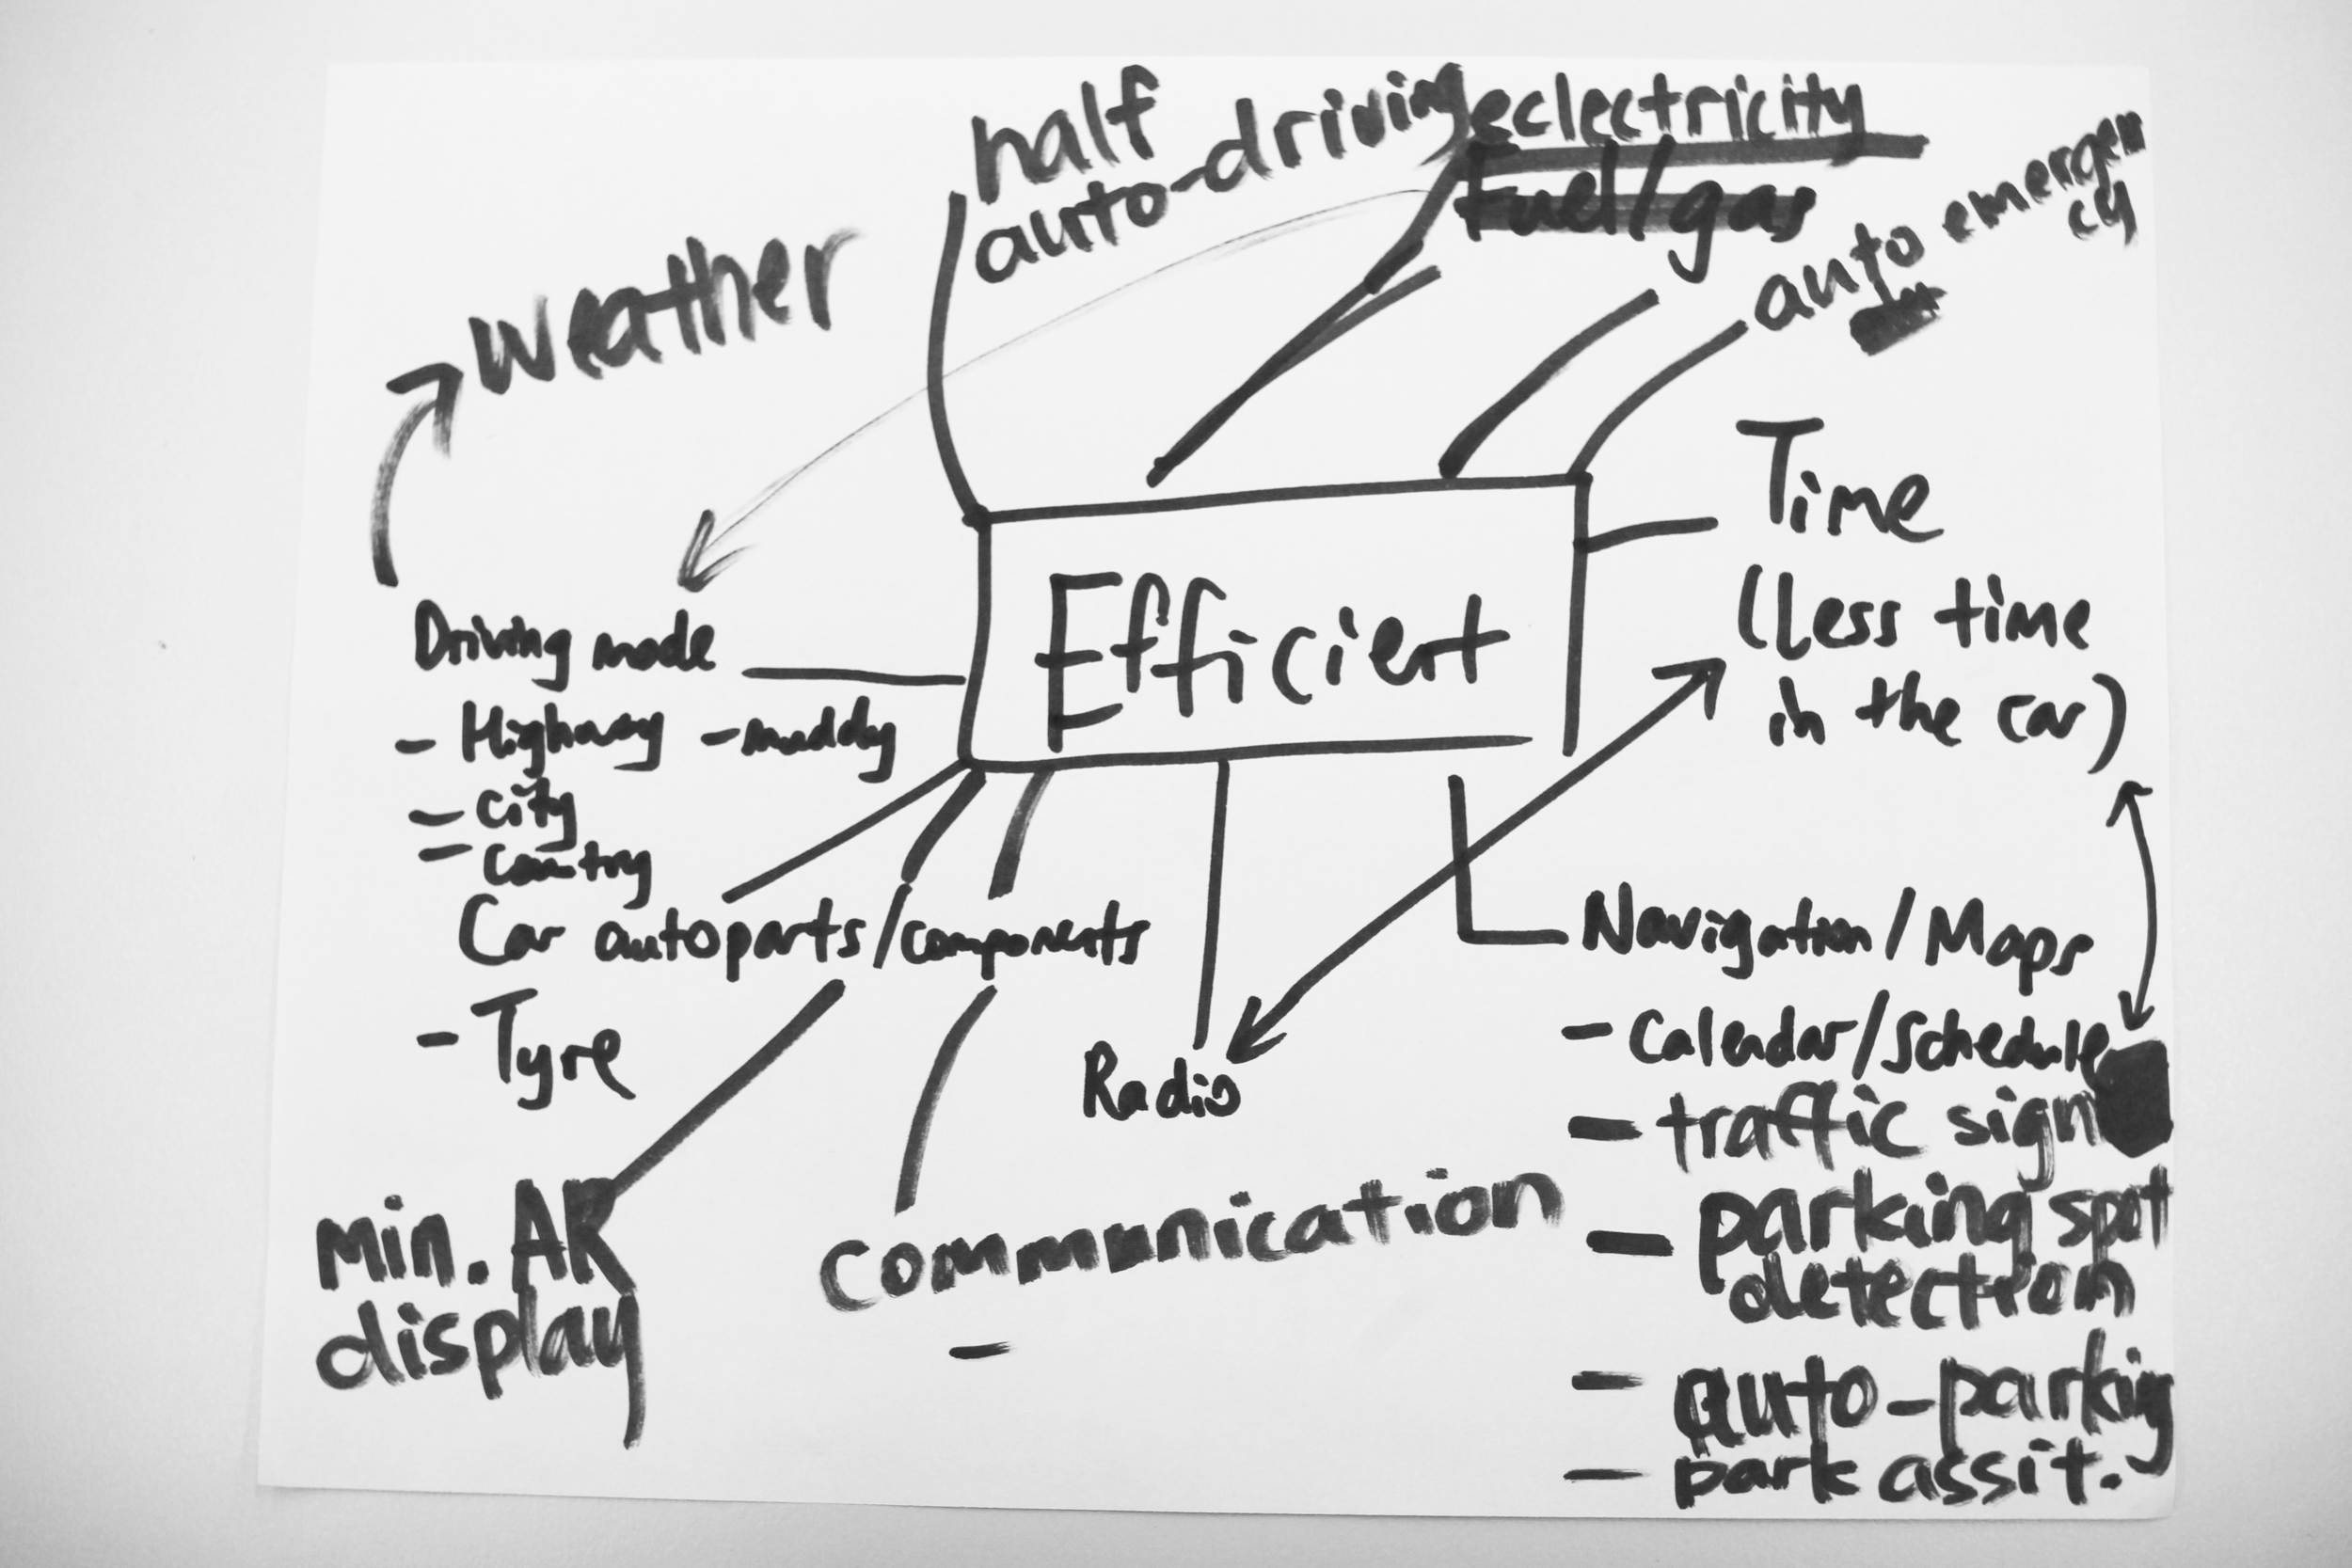 half
auto-driving
eclectricity
Fuel/gas
auto emergen
cy
Weather
Time
(less time
in the car)
Efficient
Driving mode
- Highway - muddy
- City
- Country
Car autoparts/components
- Tyre
Radio
Navigation/Maps
- Calendar/Schedule
- traffic sign
- parking spot
detection
- auto-parking
- park assit.
Min. AR
display
communication
-